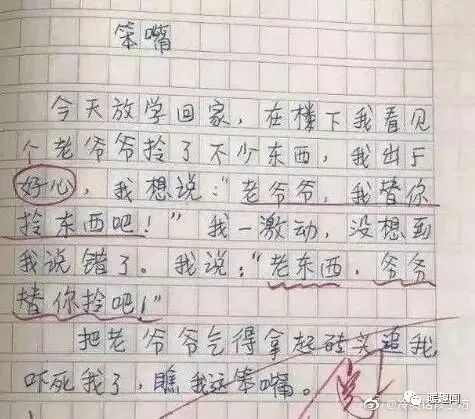 笨嘴
今天放学回家，在楼下我看见
个老爷爷拎了不少东西，我出于
好心，我想说："老爷爷，我替你
拎东西吧！"我一激动，没想到
我说错了。我说："老东西，爷爷
替你拎吧！"
把老爷爷气得拿起砖头追我
吓死我了，瞧我这笨嘴。
暖趣闻